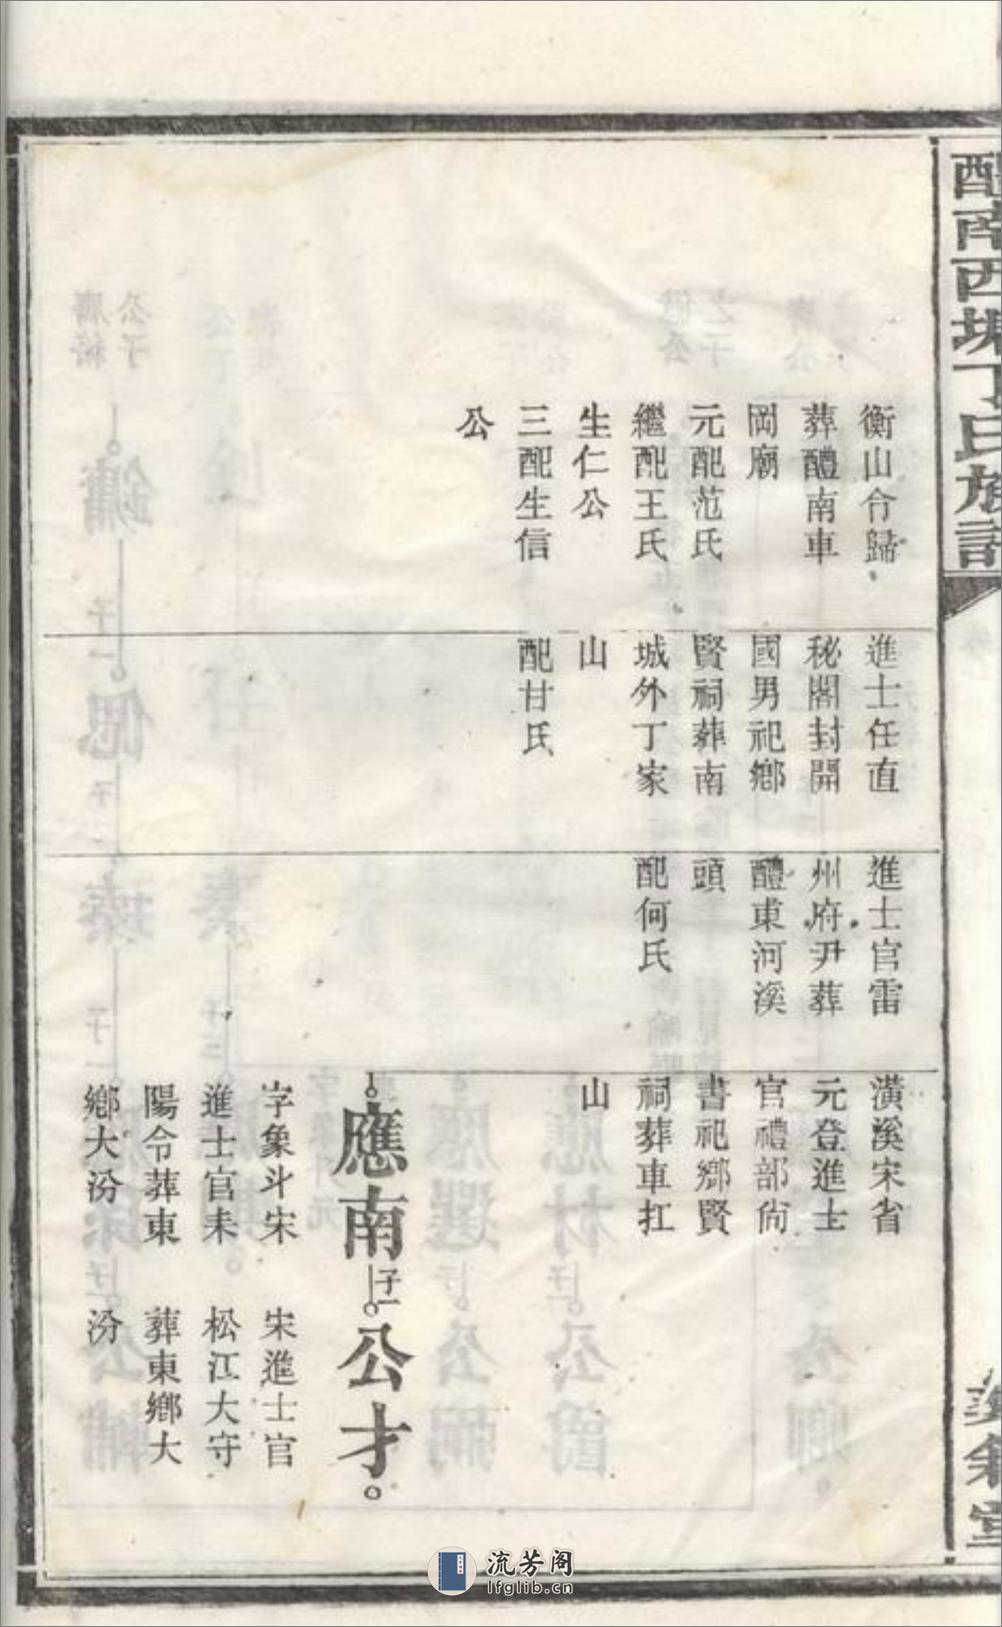 醴南西塘丁氏族譜
衡山令歸
葬醴南車
岡廟
元配范氏
繼配王氏
生仁公
三配生信
公
進士任直
秘閣封開
國男祀鄉
賢祠葬南
城外丁家
山
配甘氏
進士官雷
州府尹葬
醴東河溪
頭
配何氏
潢溪宋省
元登進士
官禮部尙
書祀鄉賢
祠葬車扛
山
應南子一公才
字象斗宋
進士官未
陽令葬東
鄉大汾
宋進士官
松江大守
葬東鄉大
汾
流芳阁
lfglib.cn